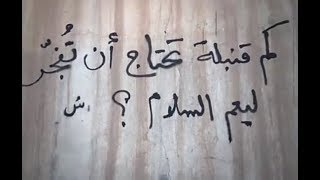 كم قنبلة تحتاج أن تُفجّر
ليعم السلام ؟ س